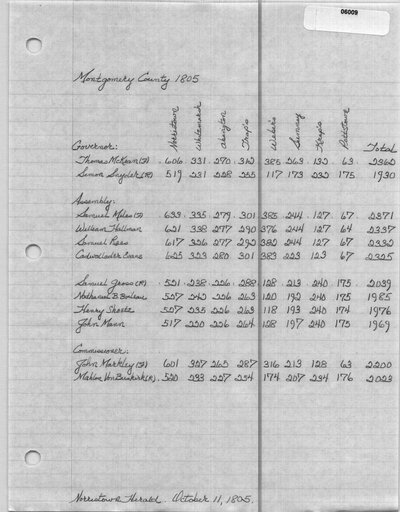 06009
Montgomery County 1805
Norristown Whitemarsh Abington Trap's Weber's Sumney Krap's Pottstown
Governor: Total
Thomas McKean 606 331 270 312 385 263 132 63 2362
Simon Snyder(R) 519 231 228 255 117 173 232 175 1930
Assembly:
Samuel Miles 633 335 279 301 385 244 127 67 2371
William Hallman 621 338 277 290 376 244 127 64 2337
Samuel 617 326 277 292 382 244 127 67 2332
Cadwallader Evans 625 323 280 301 383 223 123 67 2325
Samuel Gross(R) 521 238 226 288 128 213 240 175 2039
Nathaniel B. Boileau 527 242 226 263 120 192 240 175 1985
Henry 527 235 226 263 118 193 240 174 1976
John Mann 517 220 226 264 128 197 240 175 1969
Commissioner:
John Markley 601 327 265 287 316 213 128 63 2200
520 233 227 254 174 207 234 176 2023
Norristown Herald. October 11, 1805.